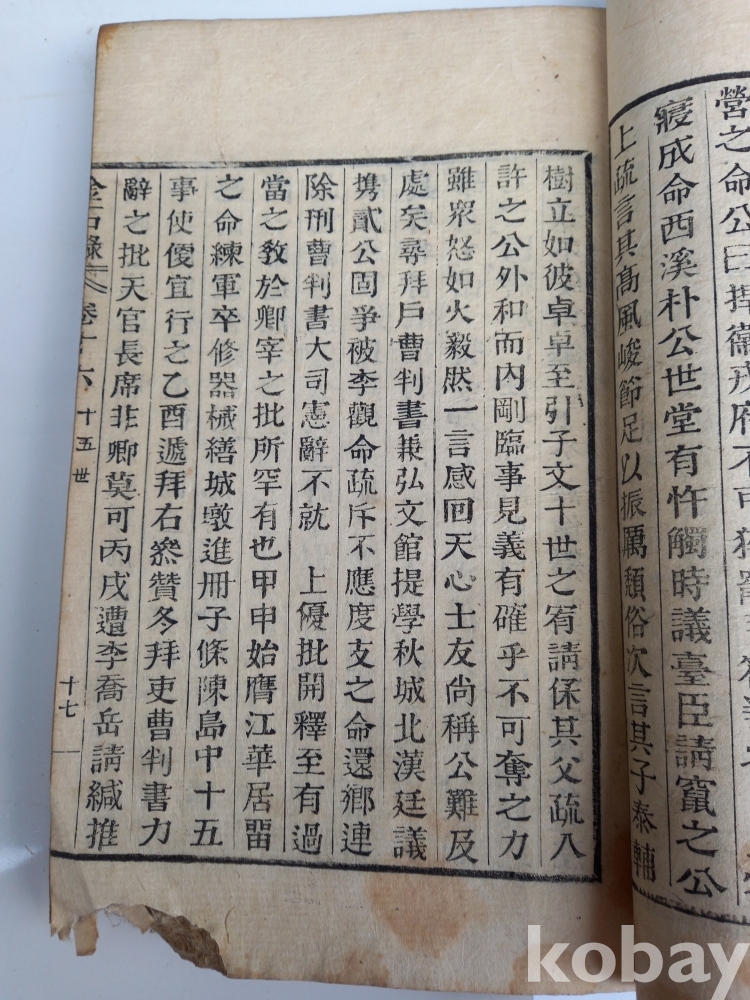 營之命公曰揮
寢成命西溪朴公世堂有忤觸時議臺臣請竄之公
上疏言其高風峻節足以振厲頹俗次言其子泰輔
樹立如彼卓卓至引子文十世之宥請保其父疏入
許之公外和而內剛臨事見義有確乎不可奪之力
雖衆怒如火毅然一言感回天心士友尙稱公難及
處矣尋拜戶曹判書兼弘文館提學秋城北漢廷議
携貳公固爭被李觀命疏斥不應度支之命還鄕連
除刑曹判書大司憲辭不就 上優批開釋至有過
當之敎於卿宰之批所罕有也甲申始膺江華居留
之命練軍卒修器械繕城墩進冊子條陳島中十五
事使便宜行之乙酉遞拜右參贊冬拜吏曹判書力
辭之批天官長席非卿莫可丙戌遭李喬岳請緘推
金石錄 卷十六 十五世 十七
kobay